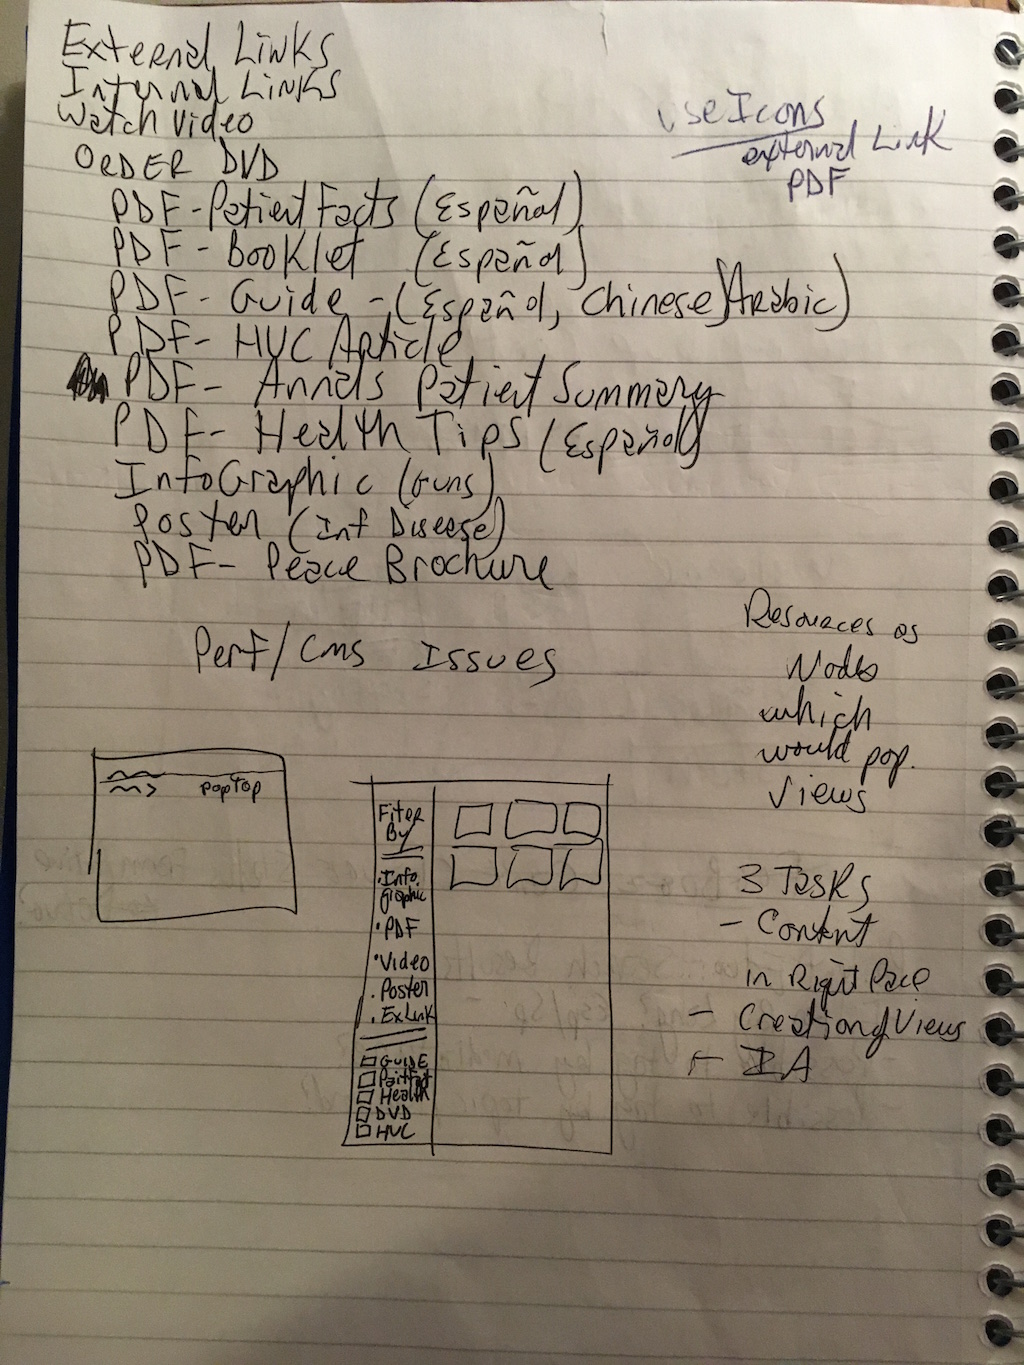 External Links
Internal Links
Watch Video
Order DVD
PDF - Patient Facts (Español)
PDF - Booklet (Español)
PDF - Guide - (Español, Chinese, Arabic)
PDF - HVC Article
PDF - Annals Patient Summary
PDF - Health Tips (Español)
InfoGraphic (Guns)
Poster (Inf Disease)
PDF - Peace Brochure
use Icons
external Link
PDF
Perf/CMS Issues
Resources as
Nodes
which
would pop.
Views
PopTop
Filter
By
• Info
Graphic
• PDF
• Video
• Poster
• ExLink
GUIDE
Health
DVD
HVC
3 Tasks
- Content
in Right Place
- Creation of Views
- IA